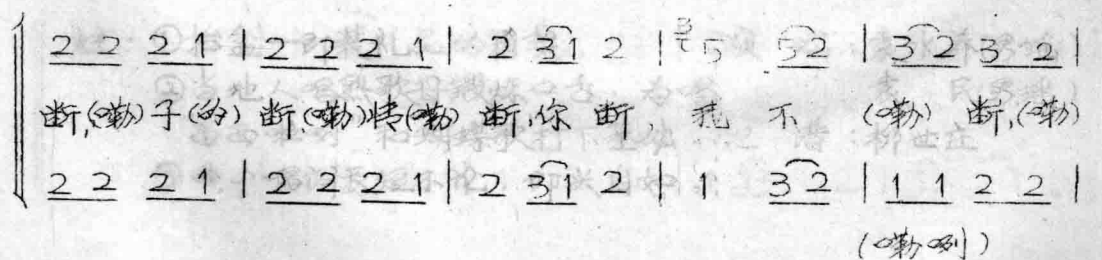 2 2 2 1 | 2 2 2 1 | 2 3 1 2 | 3 5 5 2 | 3 2 3 2 |
断,(嘞)子(的) 断,(嘞)情(嘞) 断,你 断, 我 不 (嘞) 断,(嘞)
2 2 2 1 | 2 2 2 1 | 2 3 1 2 | 1 3 2 | 1 1 2 2 |
(嘞咧)